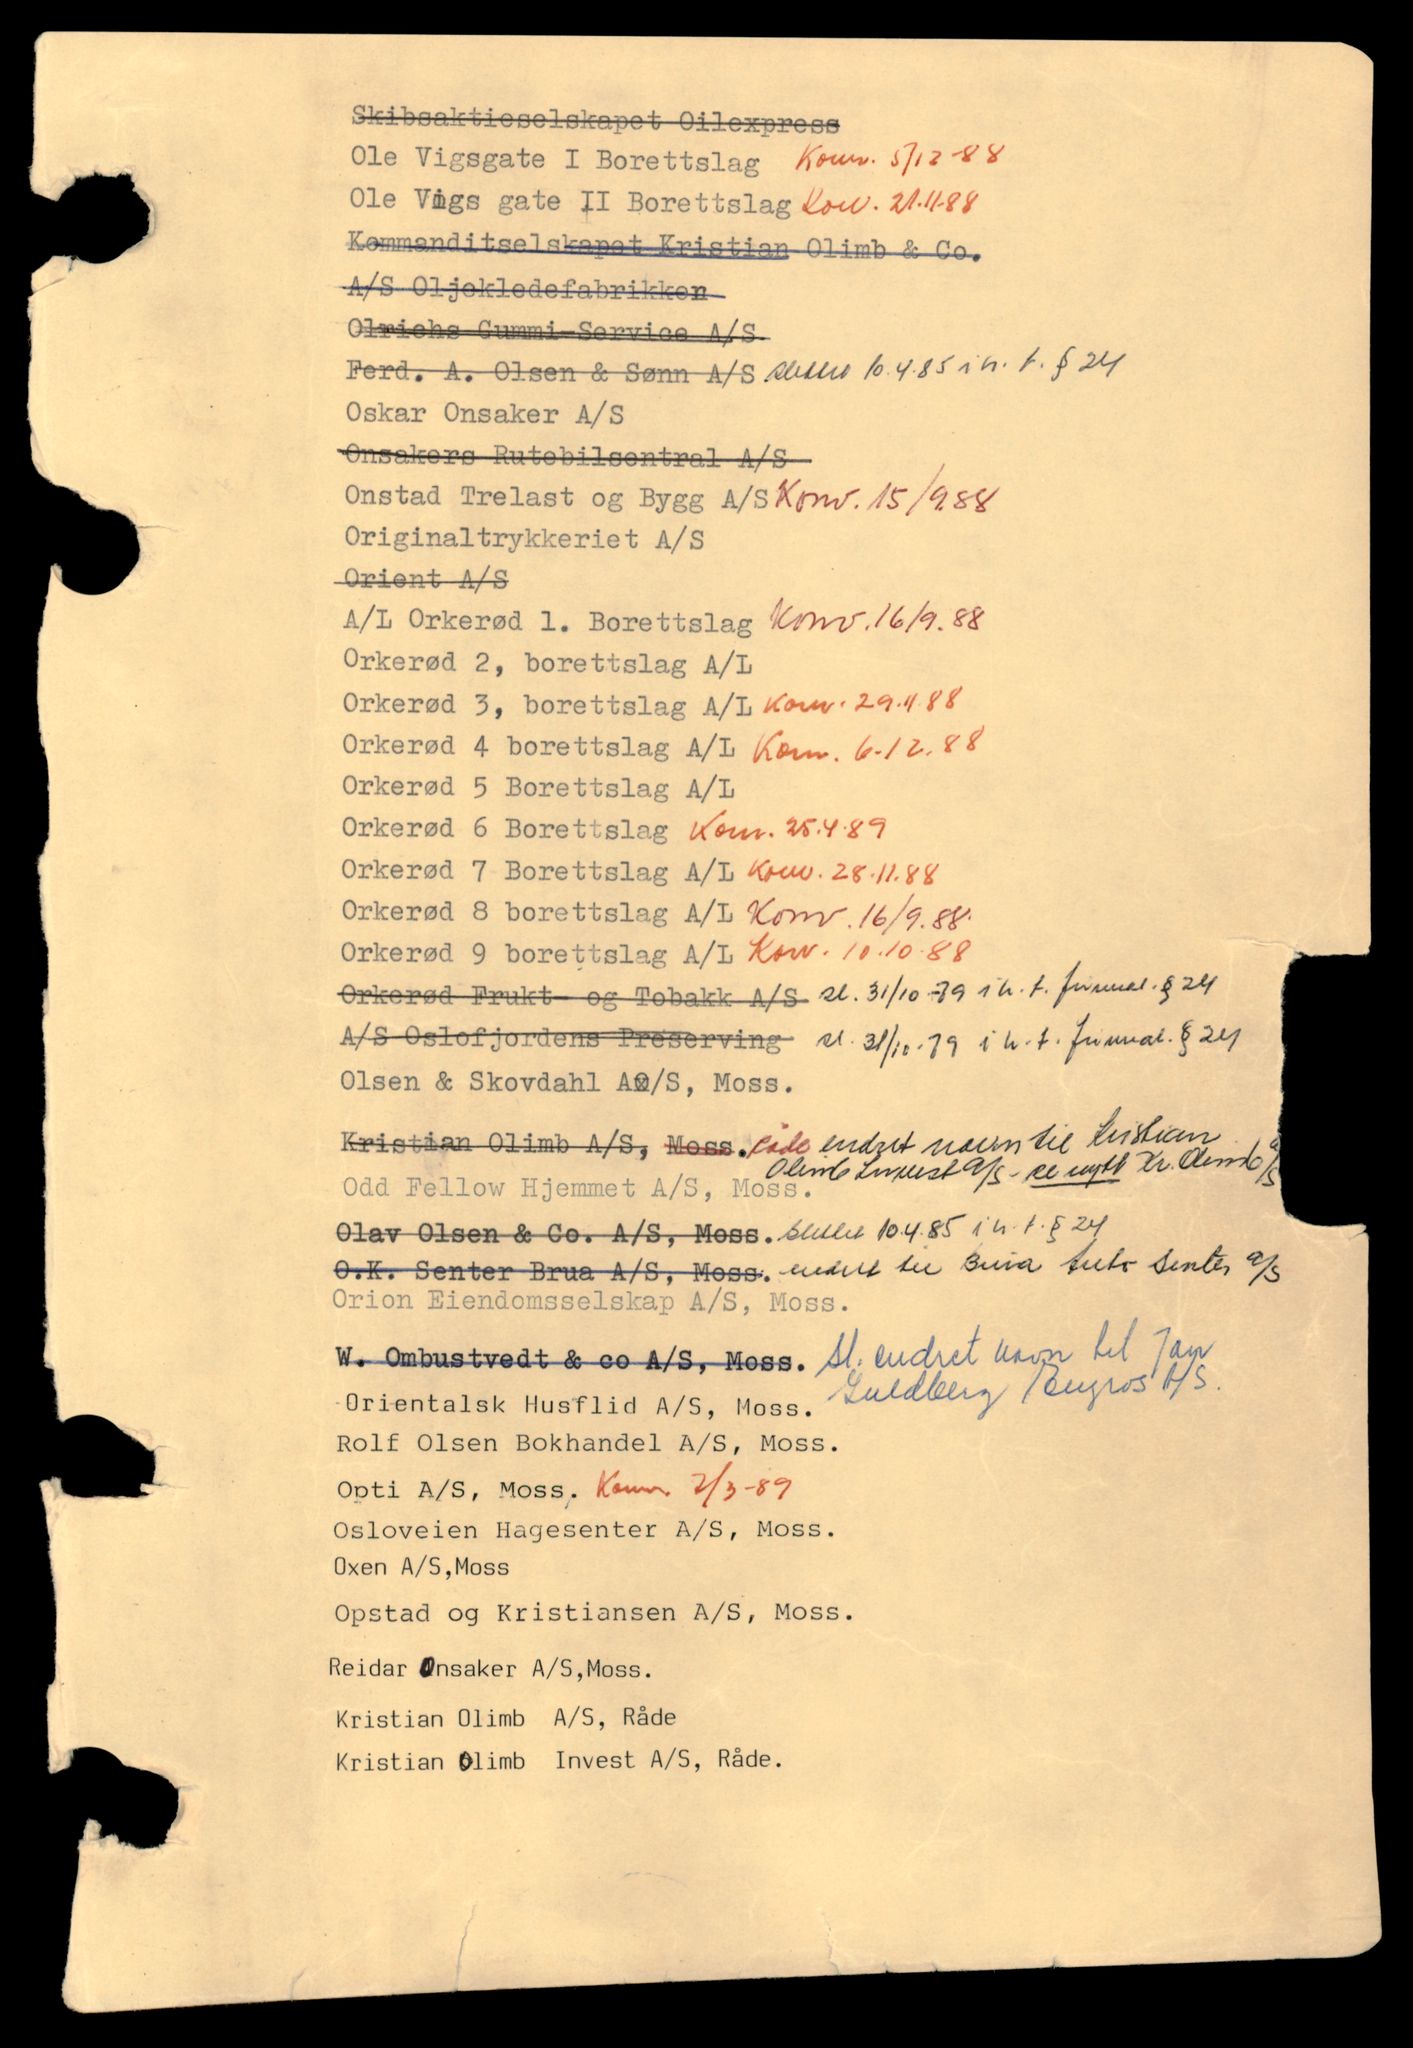 Skibsaktieselskapet Oilexpress
Ole Vigsgate I Borettslag Konv. 5/12-88
Ole Vigs gate II Borettslag Konv. 21.11.88
Kommanditselskapet Kristian Olimb & Co.
A/S Oljekledefabrikken
Olrichs Gummi-Service A/S
Ferd. A. Olsen & Sønn A/S slettet 10.4.85 i h. t. § 24
Oskar Onsaker A/S
Onsakers Rutebilsentral A/S
Onstad Trelast og Bygg A/S Konv. 15/9.88
Originaltrykkeriet A/S
Orient A/S
A/L Orkerød 1. Borettslag Konv. 16/9.88
Orkerød 2, borettslag A/L
Orkerød 3, borettslag A/L Konv. 29.11.88
Orkerød 4 borettslag A/L Konv. 6.12.88
Orkerød 5 Borettslag A/L
Orkerød 6 Borettslag Konv. 25.4.89
Orkerød 7 Borettslag A/L Konv. 28.11.88
Orkerød 8 borettslag A/L Konv. 16/9.88.
Orkerød 9 borettslag A/L Konv. 10.10.88
Orkerød Frukt- og Tobakk A/S sl. 31/10.79 i h. t. § 24
A/S Oslofjordens Preserving sl. 31/10.79 i h. t. § 24
Olsen & Skovdahl A/S, Moss.
Kristian Olimb A/S, Moss. Råde endret navn til Kristian
Olimb Invest A/S - se nytt Kr. Olimb A/S
Odd Fellow Hjemmet A/S, Moss.
Olav Olsen & Co. A/S, Moss. slettet 10.4.85 i h. t. § 24
O.K. Senter Brua A/S, Moss. endret til Brua Auto Senter A/S
Orion Eiendomsselskap A/S, Moss.
W. Ombustvedt & co A/S, Moss. Sl. endret navn til Jan
Guldberg Engros A/S.
Orientalsk Husflid A/S, Moss.
Rolf Olsen Bokhandel A/S, Moss.
Opti A/S, Moss. Konv. 2/3-89
Osloveien Hagesenter A/S, Moss.
Oxen A/S,Moss
Opstad og Kristiansen A/S, Moss.
Reidar Onsaker A/S,Moss.
Kristian Olimb A/S, Råde
Kristian Olimb Invest A/S, Råde.